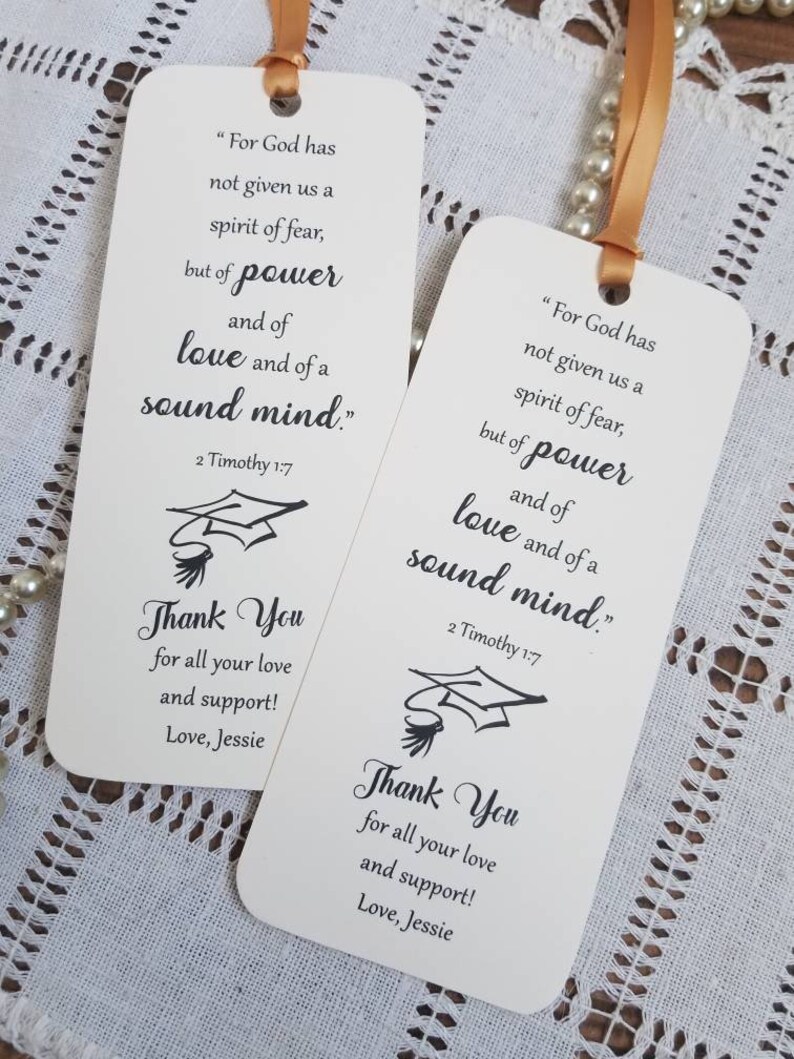 “ For God has
not given us a
spirit of fear,
but of power
and of
love and of a
sound mind.”
2 Timothy 1:7
Thank You
for all your love
and support!
Love, Jessie
“ For God has
not given us a
spirit of fear,
but of power
and of
love and of a
sound mind.”
2 Timothy 1:7
Thank You
for all your love
and support!
Love, Jessie